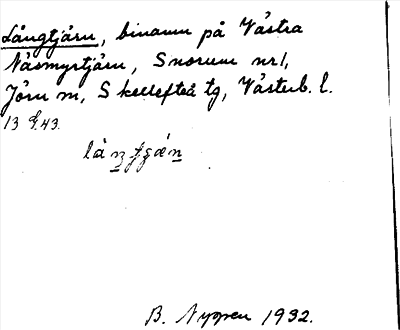 Långtjärn, binamn på Västra
Näsmyrtjärn, Snorum nr 1,
Jörn sn, Skellefteå tg, Västerb. l.
B. Nygren 1932.